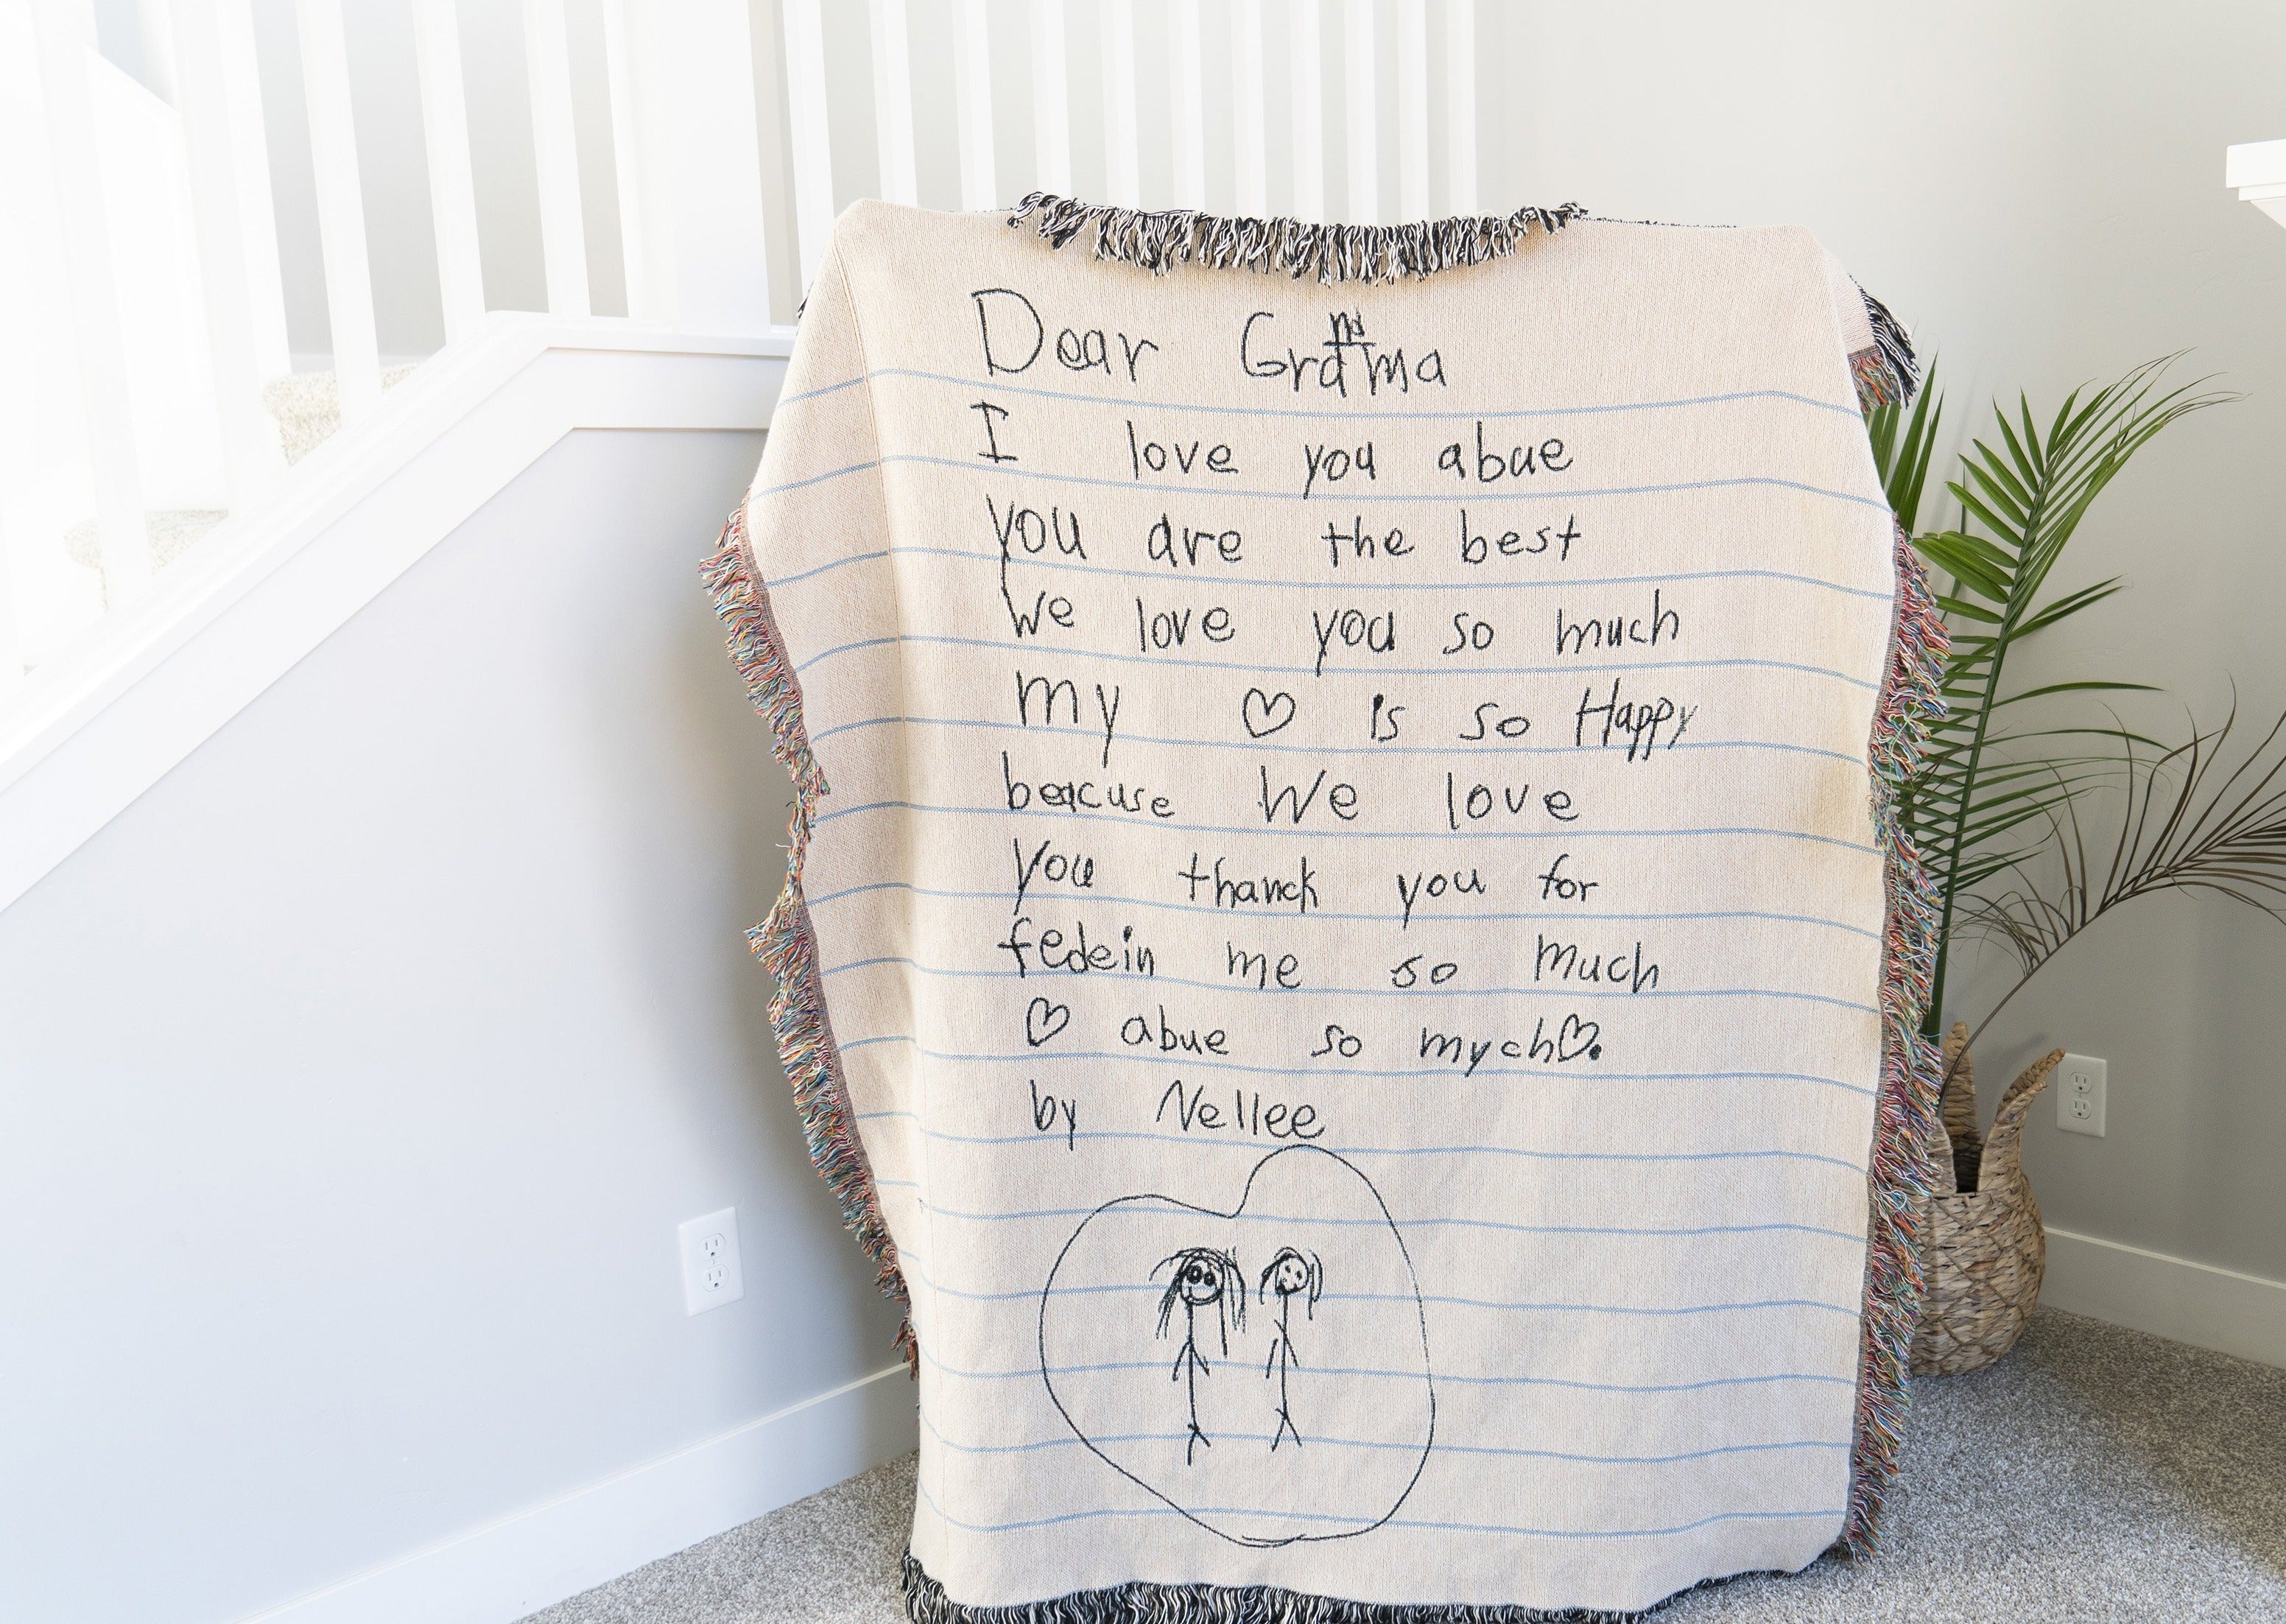 Dear Grandma
I love you abue
you are the best
We love you so much
my ♡ is so Happy
beacuse We love
you thanck you for
fedein me so much
♡ abue so mych♡.
by Nellee